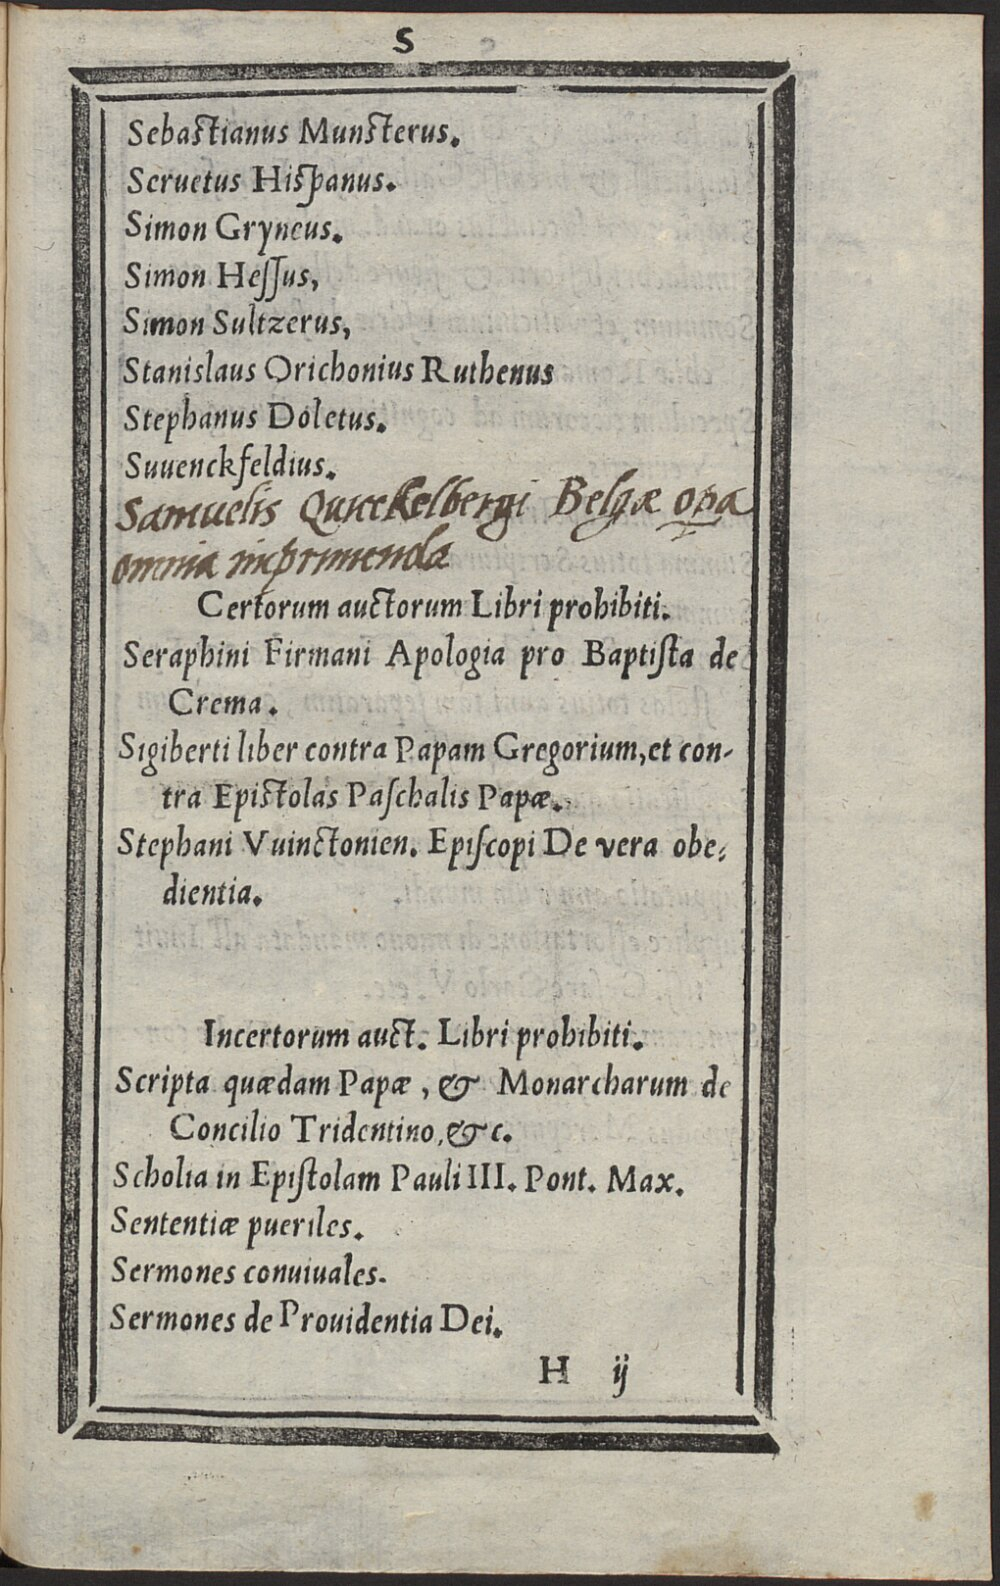 S
Sebastianus Munsterus.
Seruetus Hispanus.
Simon Gryneus.
Simon Hessus,
Simon Sultzerus,
Stanislaus Orichonius Ruthenus
Stephanus Doletus.
Suuenckfeldius.
Samuelis Quickelbergi Belgæ opa
omnia imprimenda
Certorum auctorum Libri prohibiti.
Seraphini Firmani Apologia pro Baptista de
Crema.
Sigiberti liber contra Papam Gregorium, et con-
tra Epistolas Paschalis Papæ.
Stephani Vuinctonien. Episcopi De vera obe-
dientia.
Incertorum auct. Libri prohibiti.
Scripta quædam Papæ, & Monarcharum de
Concilio Tridentino, &c.
Scholia in Epistolam Pauli III. Pont. Max.
Sententiæ pueriles.
Sermones conuiuales.
Sermones de Prouidentia Dei.
H ij